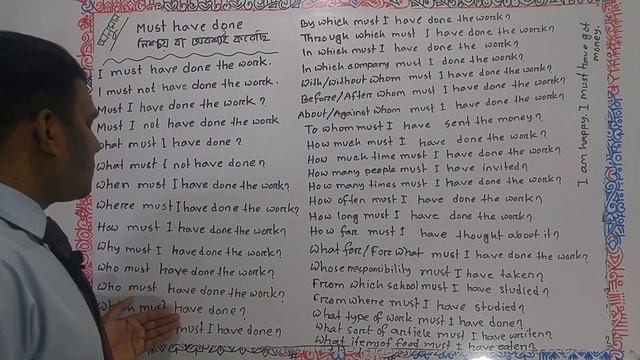 অনুরূপ
Must have done
নিশ্চয় বা অবশ্যই করেছি
I must have done the work.
I must not have done the work.
Must I have done the work?
Must I not have done the work
What must I have done?
What must I not have done?
When must I have done the work?
Where must I have done the work?
How must I have done the work?
Why must I have done the work?
Who must have done the work?
Who must have done the work?
must have done?
must I have done?
By which must I have done the work?
Through which must I have done the work?
In which must I have done the work?
In which company must I done the work?
With/without whom must I have done the work?
Before/After whom must I have done the work?
About/Against whom must I have done the work?
To whom must I have sent the money?
How much must I have done the work?
How much time must I have done the work?
How many people must I have invited?
How many times must I have done the work?
How often must I have done the work?
How long must I have done the work?
How far must I have thought about it?
What for/For what must I have done the work?
Whose responsibility must I have taken?
From which school must I have studied?
From where must I have studied?
What type of work must I have done?
What sort of article must I have written?
What items of food must I have eaten?
I am happy. I must have got
money.